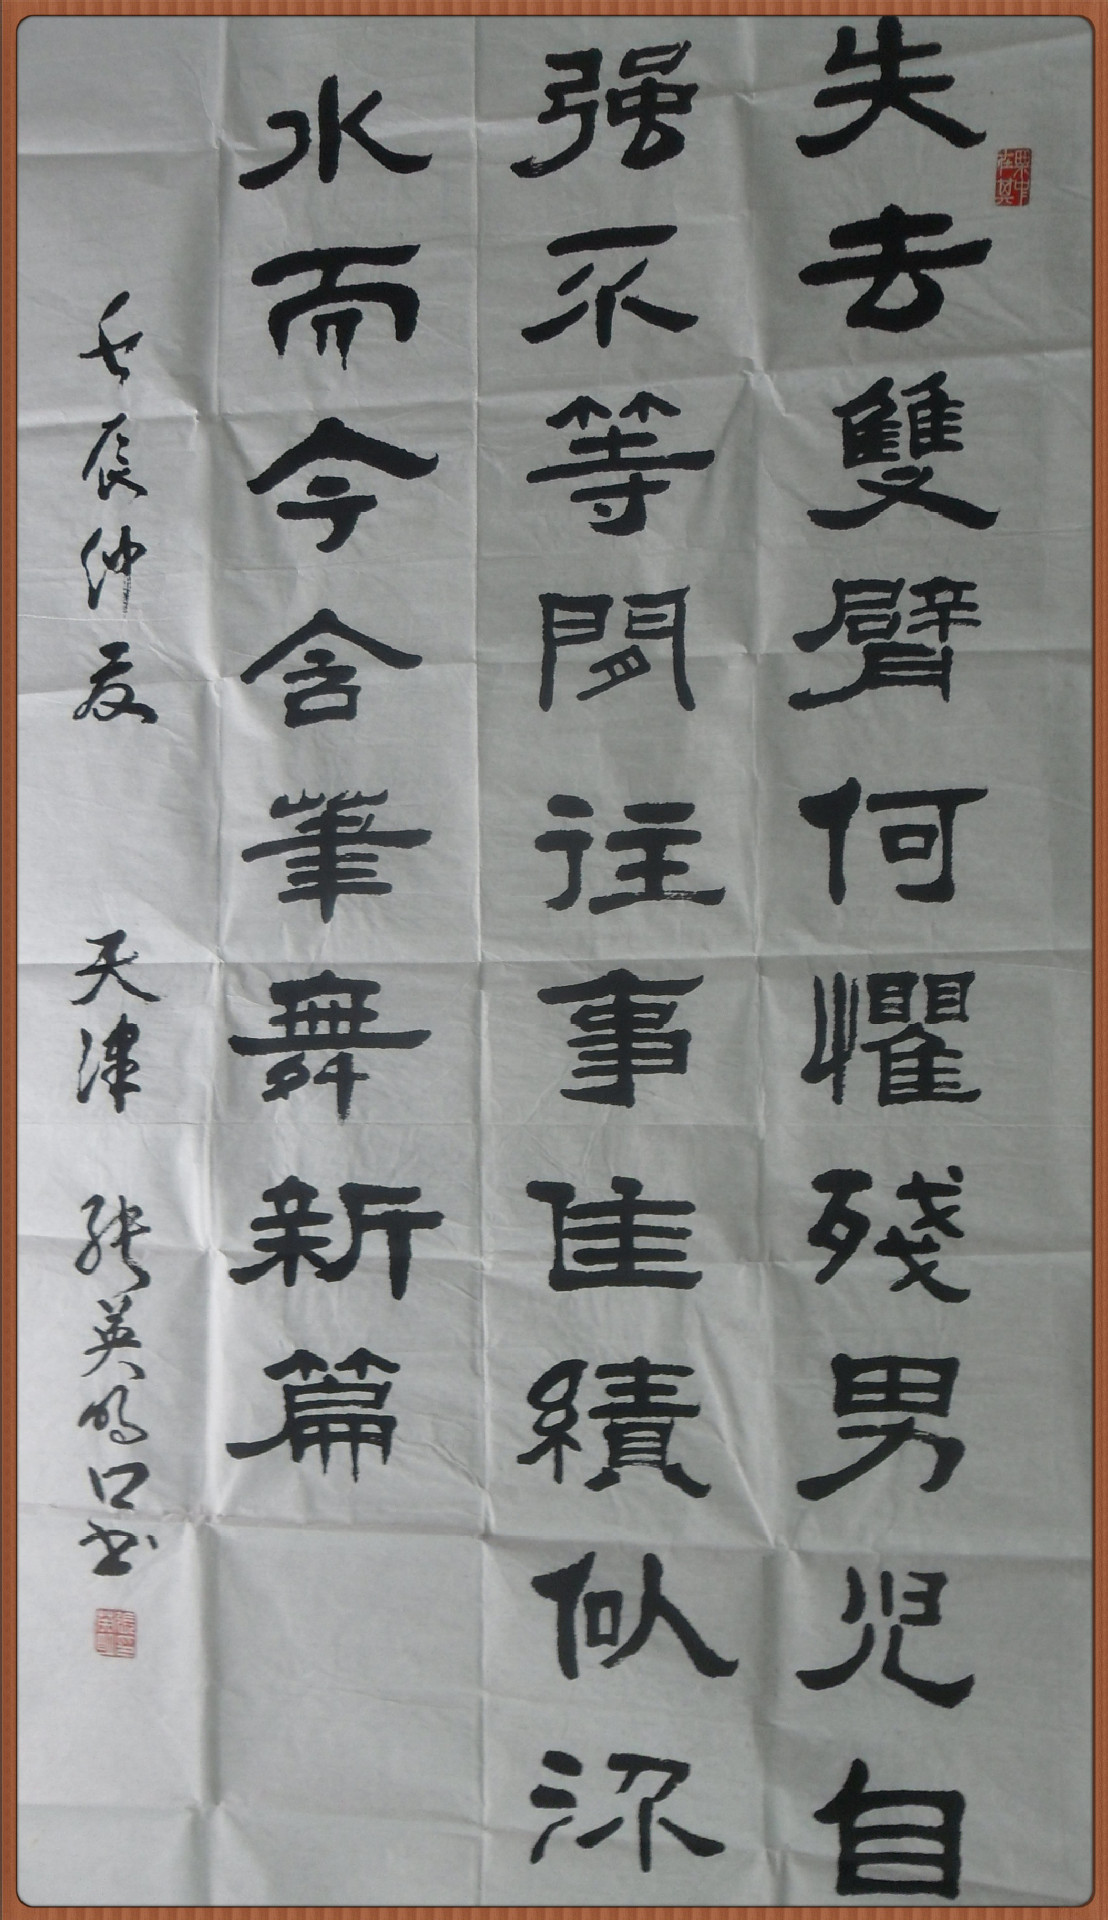 失去雙臂何懼殘男児自
强不等閒往事佳績似流
水而今含筆舞新篇
壬辰仲夏 天津 张英鸣口书